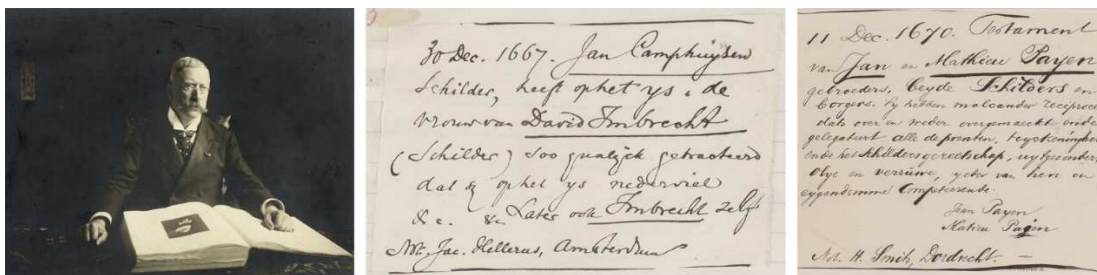 30 Dec. 1667. Jan Camphuysen
Schilder, heeft op het ys de
vrouw van David Imbrecht
(Schilder) soo qualyck getracteerd
dat zy op het ys nederviel
&c. &c. Later ook Imbrecht zelf
Not. Jac. Hellerus, Amsterdam
11 Dec. 1670. Testament
van Jan en Mathieu Payen
gebroeders, beyde Schilders en
borgers. Zy hebben malcander reciproce
dats over en weder overgemaeckt ende
gelegateert alle de prenten, teyckeninghen
ende het schildersgereetschap, uytgesondert
Olye en vernisse, yder van hen en
eygendomme Competeerende.
Jean Payen
Matieu Payen
Not. H. Smits, Dordrecht.